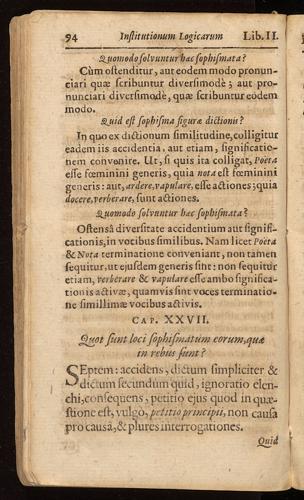 94 Institutionum Logicarum Lib. II.
Quomodo solvuntur hæc sophismata?
Cùm ostenditur, aut eodem modo pronun-
ciari quæ scribuntur diversimodè; aut pro-
nunciari diversimodè, quæ scribuntur eodem
modo.
Quid est sophisma figuræ dictionis?
In quo ex dictionum similitudine, colligitur
eadem iis accidentia, aut etiam, significatio-
nem convenire. Ut, si quis ita colligat, Poëta
esse fœminini generis, quia nota est fœminini
generis: aut, ardere, vapulare, esse actiones; quia
docere, verberare, sunt actiones.
Quomodo solvuntur hæc sophismata?
Ostensâ diversitate accidentium aut signifi-
cationis, in vocibus similibus. Nam licet Poëta
& Nota terminatione conveniant, non tamen
sequitur, ut ejusdem generis sint: non sequitur
etiam, verberare & vapulare esse ambo significa-
tionis activæ, quamvis sint voces terminatio-
ne simillimæ vocibus activis.
CAP. XXVII.
Quot sunt loci sophismatum eorum, quæ
in rebus sunt?
SEptem: accidens, dictum simpliciter &
dictum secundùm quid, ignoratio elen-
chi, consequens, petitio ejus quod in quæ-
stione est, vulgò, petitio principii, non causa
pro causa, & plures interrogationes.
Quid